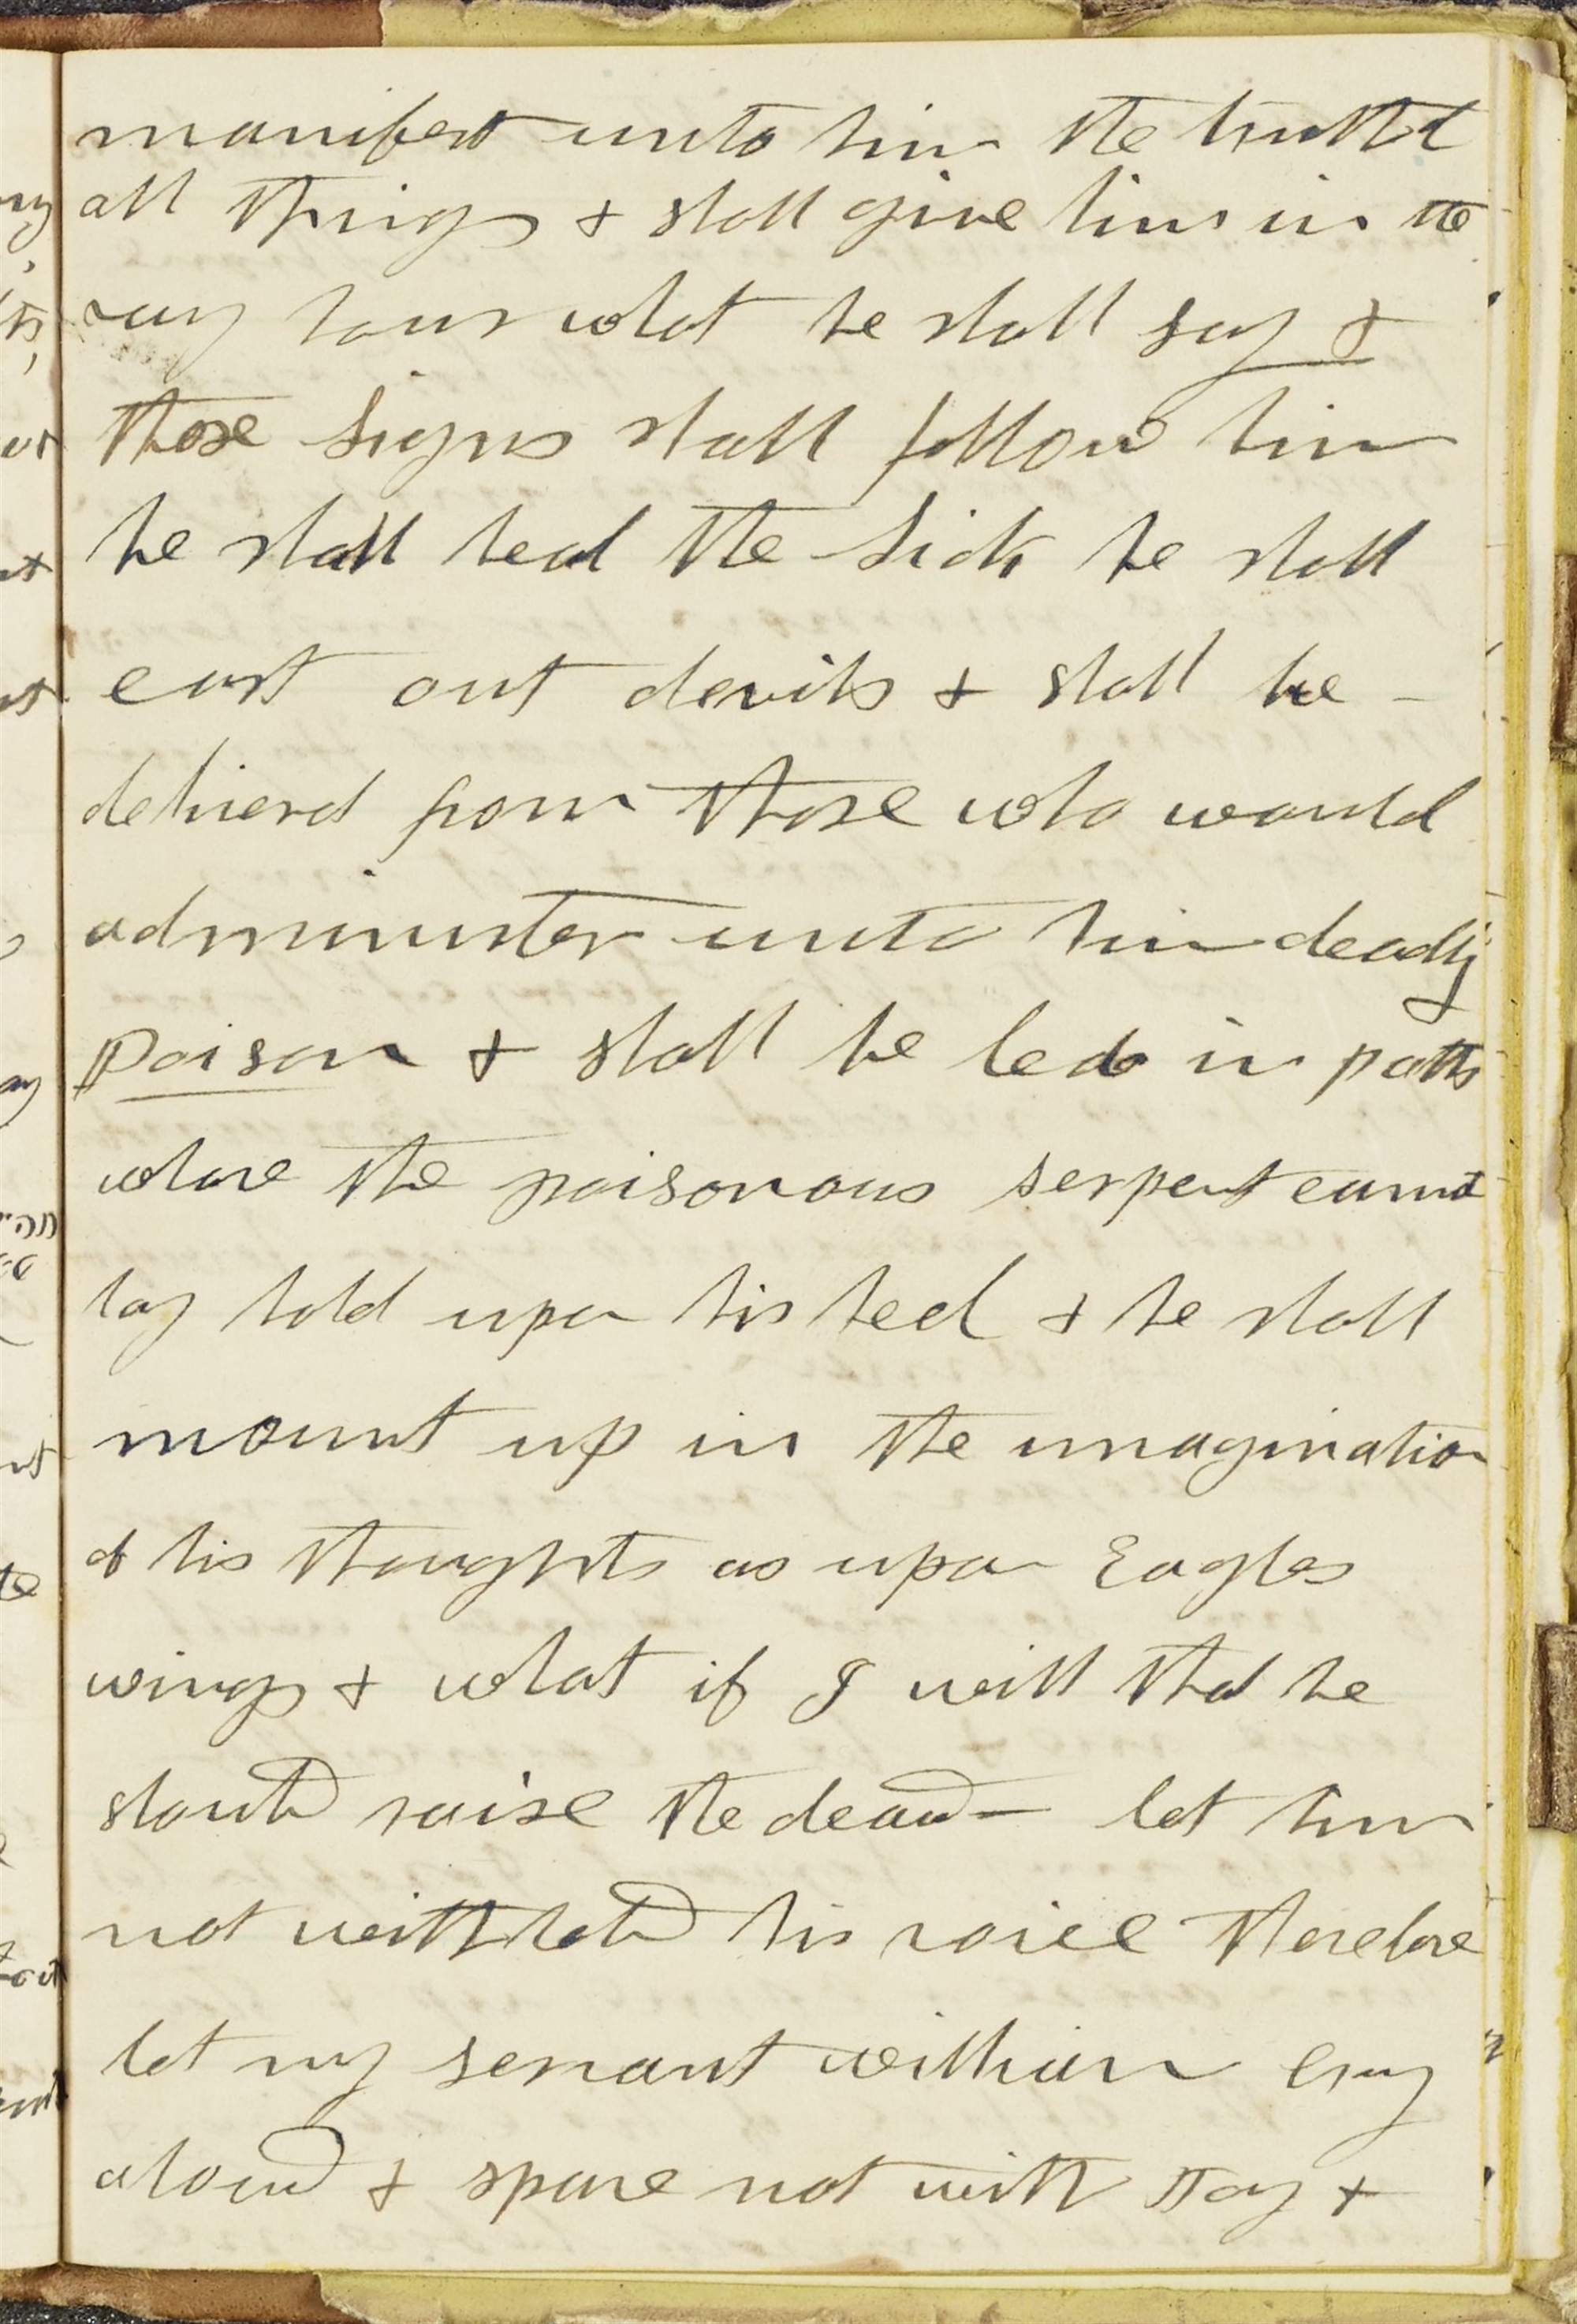 manifest unto him the truth of
all things & shall give him in the
very hour what he shall say &
those signs shall follow him
he shall heal the sick he shall
cast out devils & shall be -
deliverd from those who would
administer unto him deadly
poison & shall be led in paths
whare the poisonous serpent cannot
lay hold upon his heel & he shall
mount up in the imagination
of his thoughts as upon Eagles
wings & what if I will that he
should raise the dead - let him
not withhold his voice therefore
let my servant william cry
aloud & spare not with Joy &